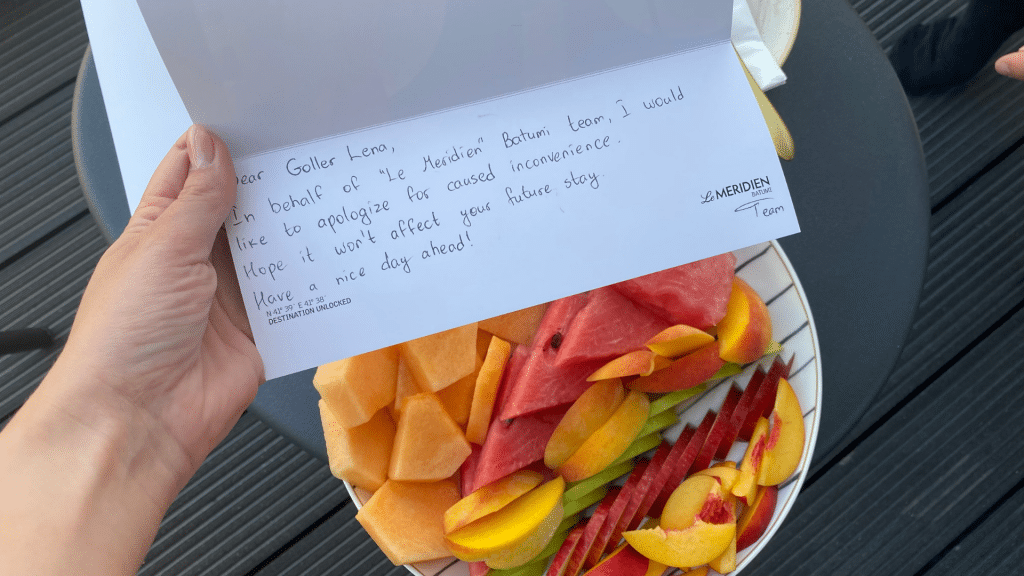 ear Goller Lena,
In behalf of "Le Meridien" Batumi team, I would
like to apologize for caused inconvenience.
Hope it won't affect your future stay.
Have a nice day ahead!
Le MERIDIEN
BATUMI
Team
N 41° 39' E 41° 38'
DESTINATION UNLOCKED